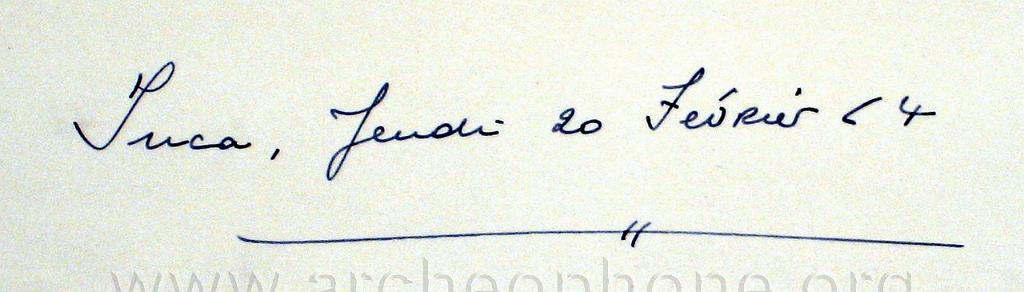 Inca, Jeudi 20 Février 64
www.archeophone.org